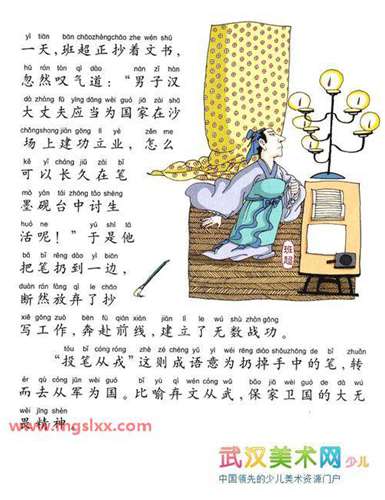 yì tiān bān chāozhèngchāo zhe wén shū
一天，班超正抄着文书，
hū rán tàn qì dào nán zǐ hàn
忽然叹气道：“男子汉
dà zhàng fū yīng dāng wèi guó jiā zài shā
大丈夫应当为国家在沙
chǎngshang jiàn gōng lì yè zěn me
场上建功立业，怎么
kě yǐ cháng jiǔ zài bǐ
可以长久在笔
mò yàn tái zhōng tǎo shēng
墨砚台中讨生
huó ne yú shì tā
活呢！”于是他
bǎ bǐ rēng dào yì biān
把笔扔到一边，
duàn rán fàng qì le chāo
断然放弃了抄
xiě gōng zuò bēn fù qián xiàn jiàn lì le wú shù zhàn gōng
写工作，奔赴前线，建立了无数战功。
tóu bǐ cóng róng zhè zé chéng yǔ yì wéi rēng diào shǒuzhōng de bǐ zhuǎn
“投笔从戎”这则成语意为扔掉手中的笔，转
ér qù cóng jūn wèi guó bǐ yù qì wén cóng wǔ bǎo jiā wèi guó de dà wú
而去从军为国。比喻弃文从武，保家卫国的大无
wèi jīng shén
畏精神。
班超
www.mgslxx.com
武汉美术网少儿
中国领先的少儿美术资源门户